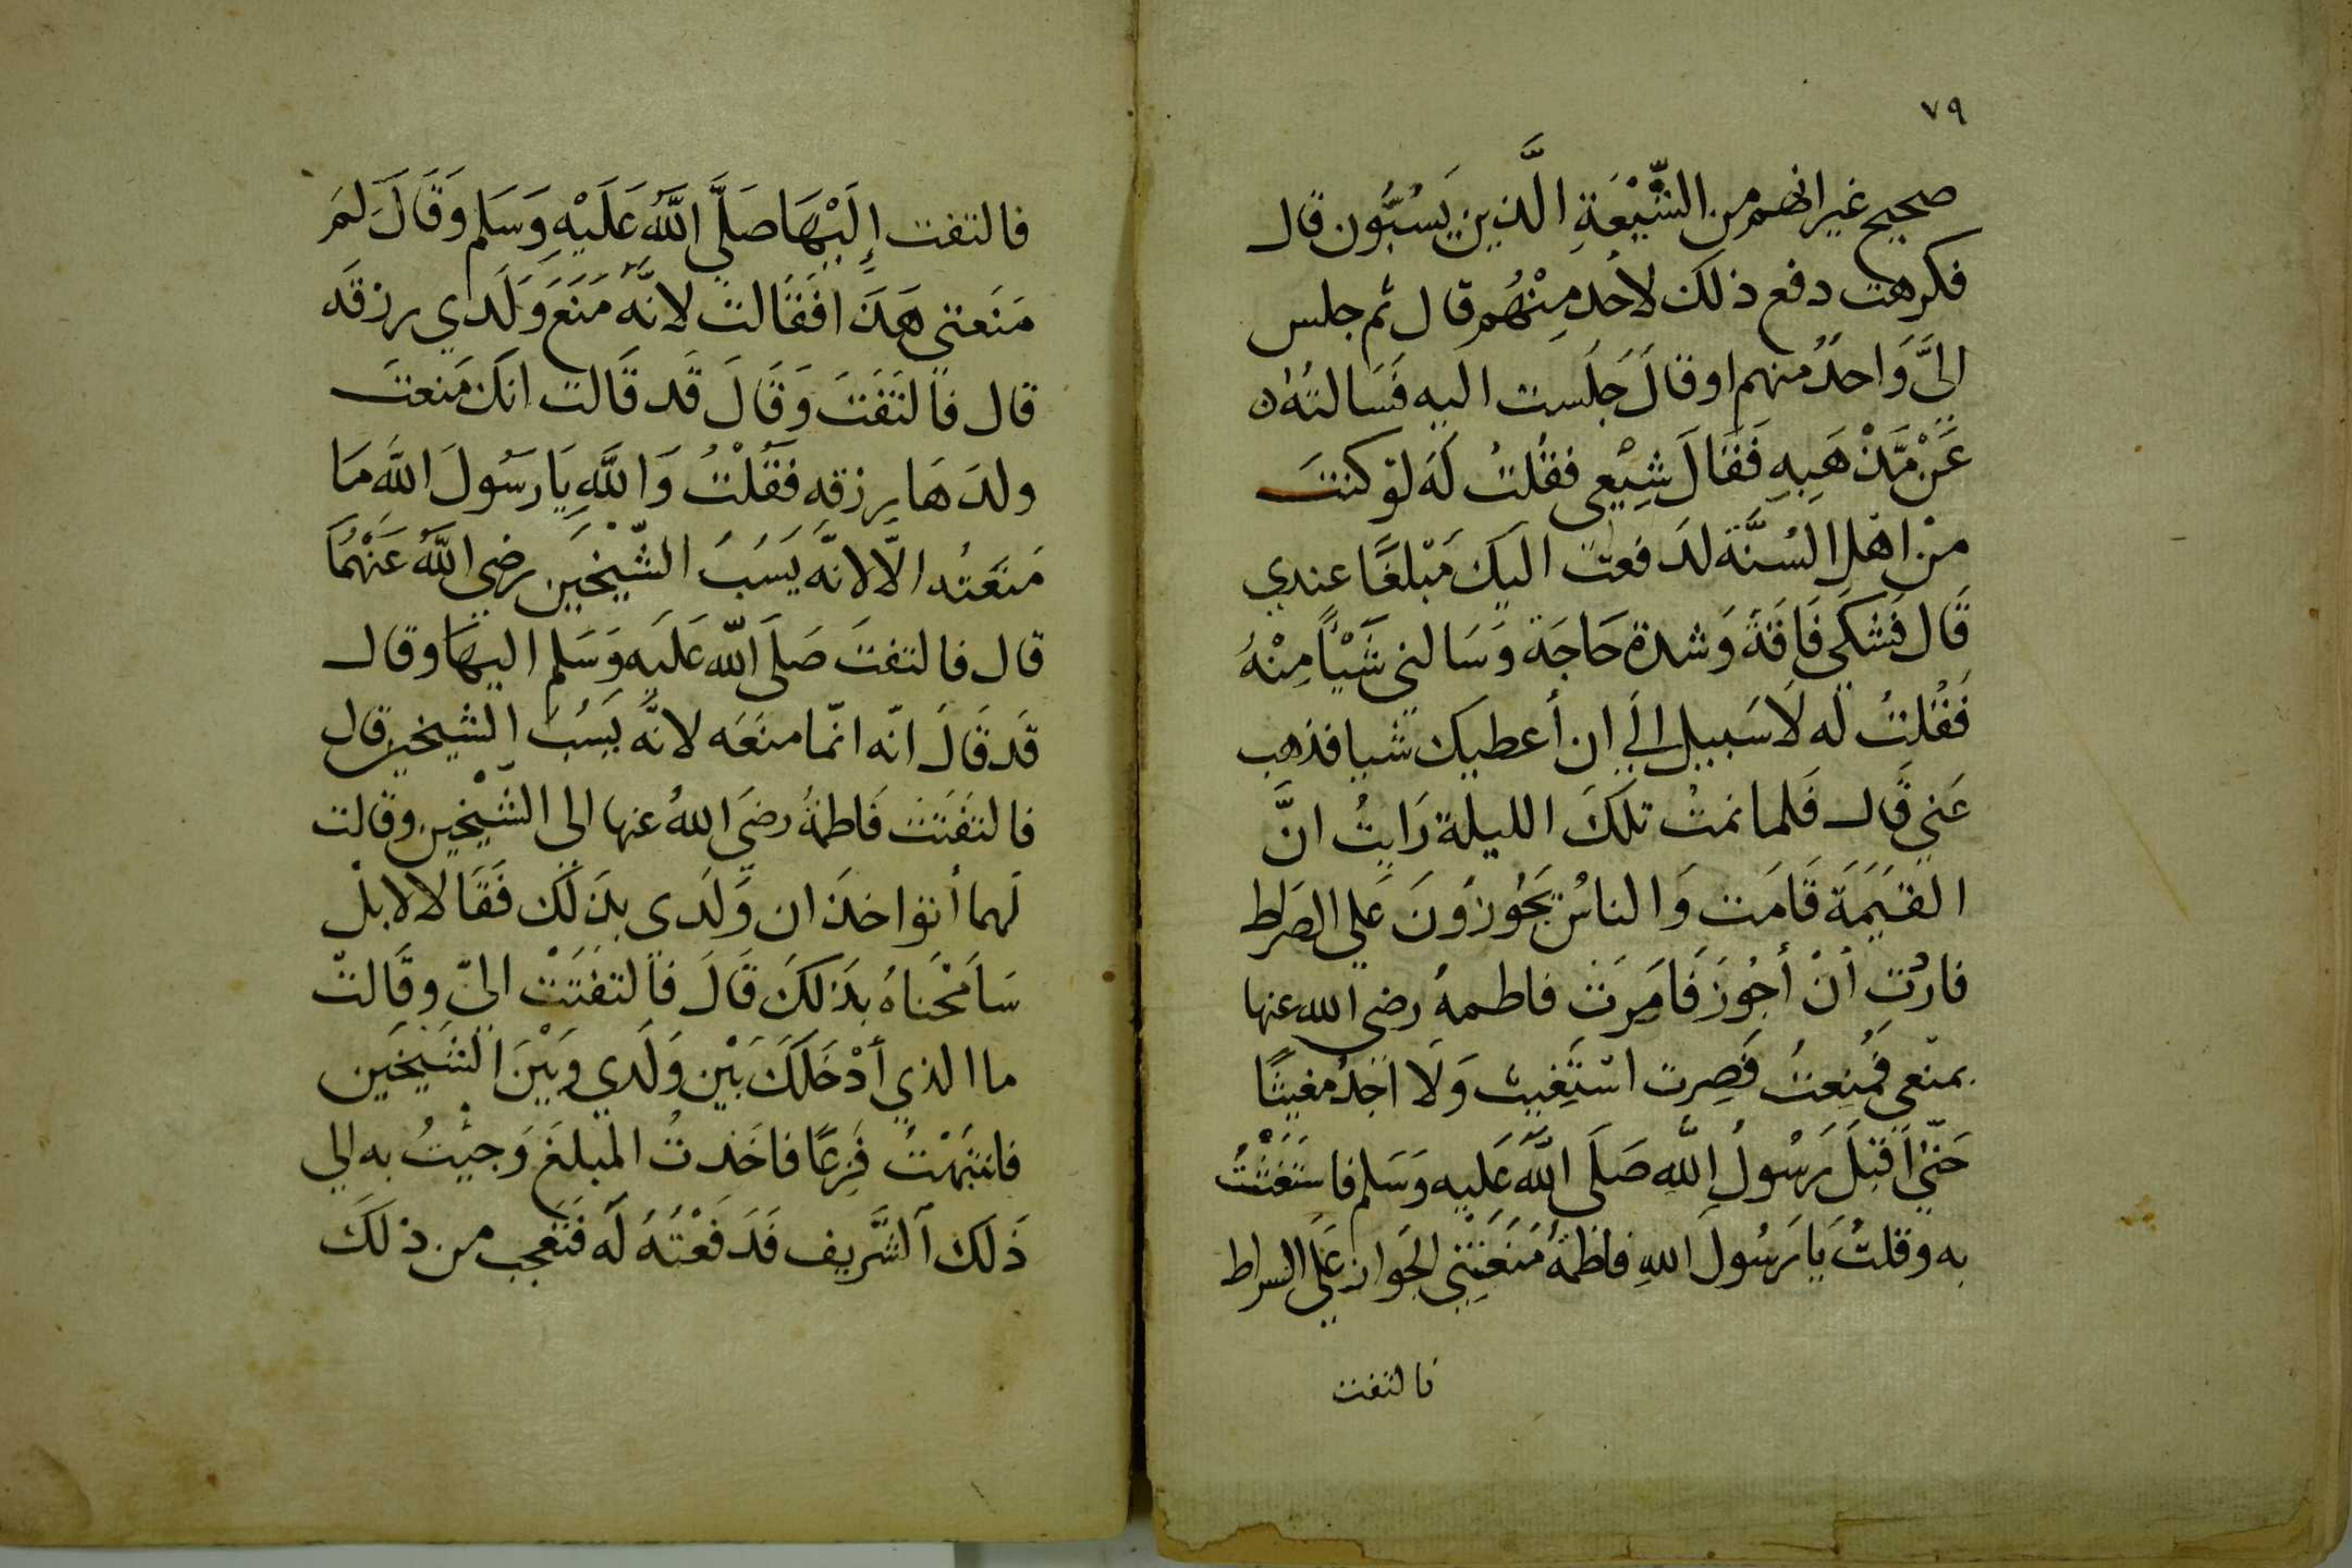 ٧٩
صحيح غير انهم من الشِّيْعَةِ الَّذين يَسُبُّون قال
فكرهت دفع ذلك لاحد مِنْهُم قال ثم جلس
اليَّ وَاحدٌ منهم اوقالَ جَلَست اليه فَسَالتُه
عَنْ مَّذْهَبِهِ فَقَالَ شِيْعِي فقُلتُ لَه لَو كنتَ
منْ اهْلِ السُنَّة لدَفعتْ اليكَ مَبْلَغًا عندي
قَال فَشكى فَاقَةً وَشدة حَاجَة وَسَالني شَيْأً مِنْهُ
فَقُلتُ له لَا سَبيل الي ان أعطيك شيا فذهب
عَني قَال فَلما نمتُ تلكَ الليلة رَايتُ انَّ
القيَمَة قَامَت وَالناسُ يَجُوزُونَ عَلي الصَراط
فاردْت أنْ أجُوزَ فَامَرَت فاطمةُ رضي الله عنها
بمنعي فمُنِعتُ فَصِرت استَغِيث وَلَا اجدُ مغيثًا
حَتّيٰ اَقبَلَ رَسُولُ اللَّهِ صَلَى اللَّهُ عَلَيه وَسَلم فاستَغَثْتُ
به وقلتُ يَا رَسُولَ اللهِ فاطمَةُ مَنَعَتْنِي الجَواز عَلَي السراط
فالتفت
فالتفت إِلَيْهَا صَلَّي اللَّهُ عَلَيْهِ وَسَلم وَقَالَ لِمَ
مَنَعتي هَذَا فَقَالتْ لانَّهُ مَنَعَ وَلَدي رزقَه
قال فَالتَفَتَ وَقَالَ قَد قَالت انكَ مَنعتَ
ولدَهَا رزقه فَقُلْتُ وَاللَّهِ يَا رَسُولَ اللَّه مَا
مَنَعْتُه الَّا لانَّه يَسُبُ الشّيْخَين رضي اللَّهُ عَنْهُمَا
قال فالتفتَ صَلَى اللّه عَلَيه وَسَلم اليهَا وقال
قَد قَالَ انّه انّما منَعَه لانَّه يَسُبُ الشيخين قال
فالتفَتَت فَاطمَةُ رضيَ اللهُ عنها الى الشّيْخين وقالت
لَهما أتؤاخذَان وَلَدي بذَلكَ فَقَالا لا بلْ
سَامَحْناهُ بذَلكَ قَالَ فَالتفَتَتْ اليّ وقَالتْ
ما الذي أدْخَلَكَ بَيْن وَلَدي وَبَيْنَ الشَيْخَين
فانتبَهْتُ فَزِعًا فاخَذتُ المَبلغَ وَجئتُ به الي
ذَلكَ الشَّريف فَدَفَعْتُهُ لَه فَتَعَجب من ذلكَ